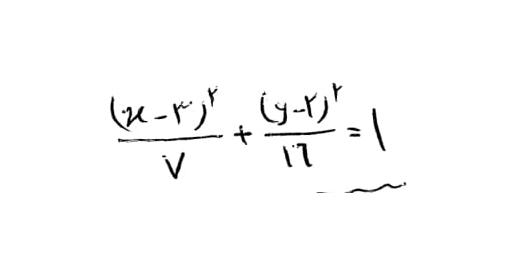 (x-۳)^۲/۷ + (y-۲)^۲/۱۶ = ۱